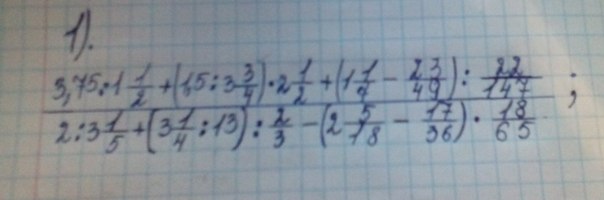 1).
3,75:1 1/2 + (1,5:3 3/4)·2 1/2 + (1 1/7 - 23/49) : 22/147 ;
2:3 1/5 + (3 1/4 :13) : 2/3 - (2 5/18 - 17/36) · 18/65